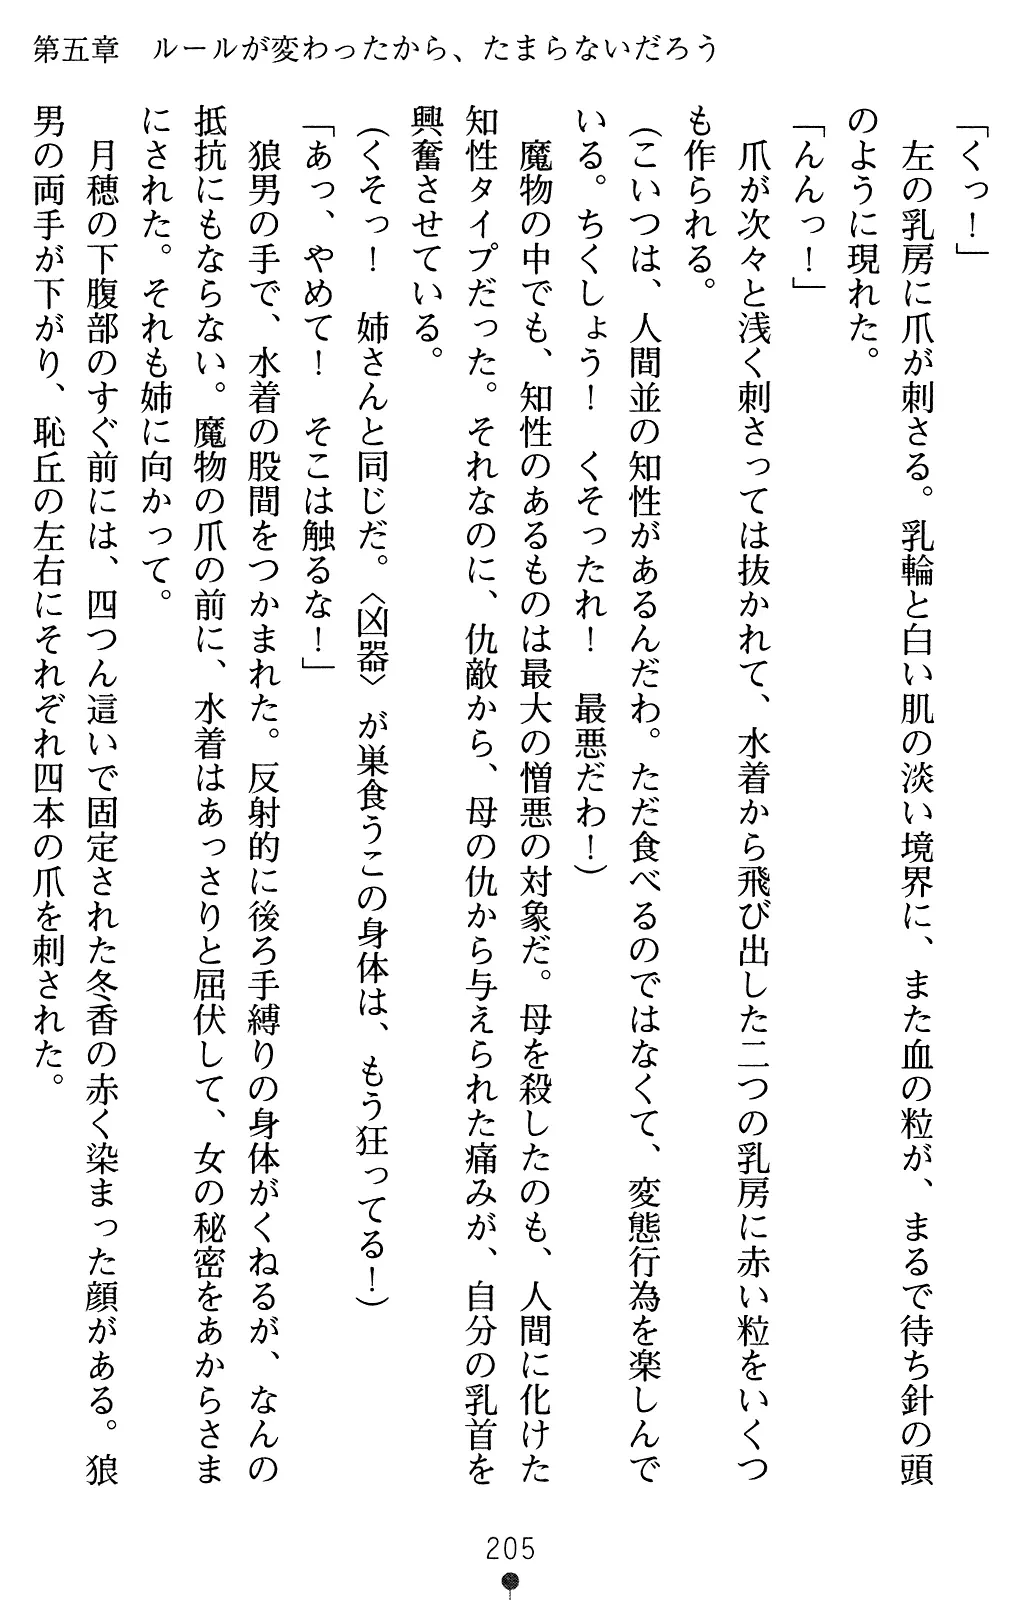 第五章　ルールが変わったから、たまらないだろう
「くっ！」
　左の乳房に爪が刺さる。乳輪と白い肌の淡い境界に、また血の粒が、まるで待ち針の頭
のように現れた。
「んんっ！」
　爪が次々と浅く刺さっては抜かれて、水着から飛び出した二つの乳房に赤い粒をいくつ
も作られる。
（こいつは、人間並の知性があるんだわ。ただ食べるのではなくて、変態行為を楽しんで
いる。ちくしょう！　くそったれ！　最悪だわ！）
　魔物の中でも、知性のあるものは最大の憎悪の対象だ。母を殺したのも、人間に化けた
知性タイプだった。それなのに、仇敵から、母の仇から与えられた痛みが、自分の乳首を
興奮させている。
（くそっ！　姉さんと同じだ。〈凶器〉が巣食うこの身体は、もう狂ってる！）
「あっ、やめて！　そこは触るな！」
　狼男の手で、水着の股間をつかまれた。反射的に後ろ手縛りの身体がくねるが、なんの
抵抗にもならない。魔物の爪の前に、水着はあっさりと屈伏して、女の秘密をあからさま
にされた。それも姉に向かって。
　月穂の下腹部のすぐ前には、四つん這いで固定された冬香の赤く染まった顔がある。狼
男の両手が下がり、恥丘の左右にそれぞれ四本の爪を刺された。
205